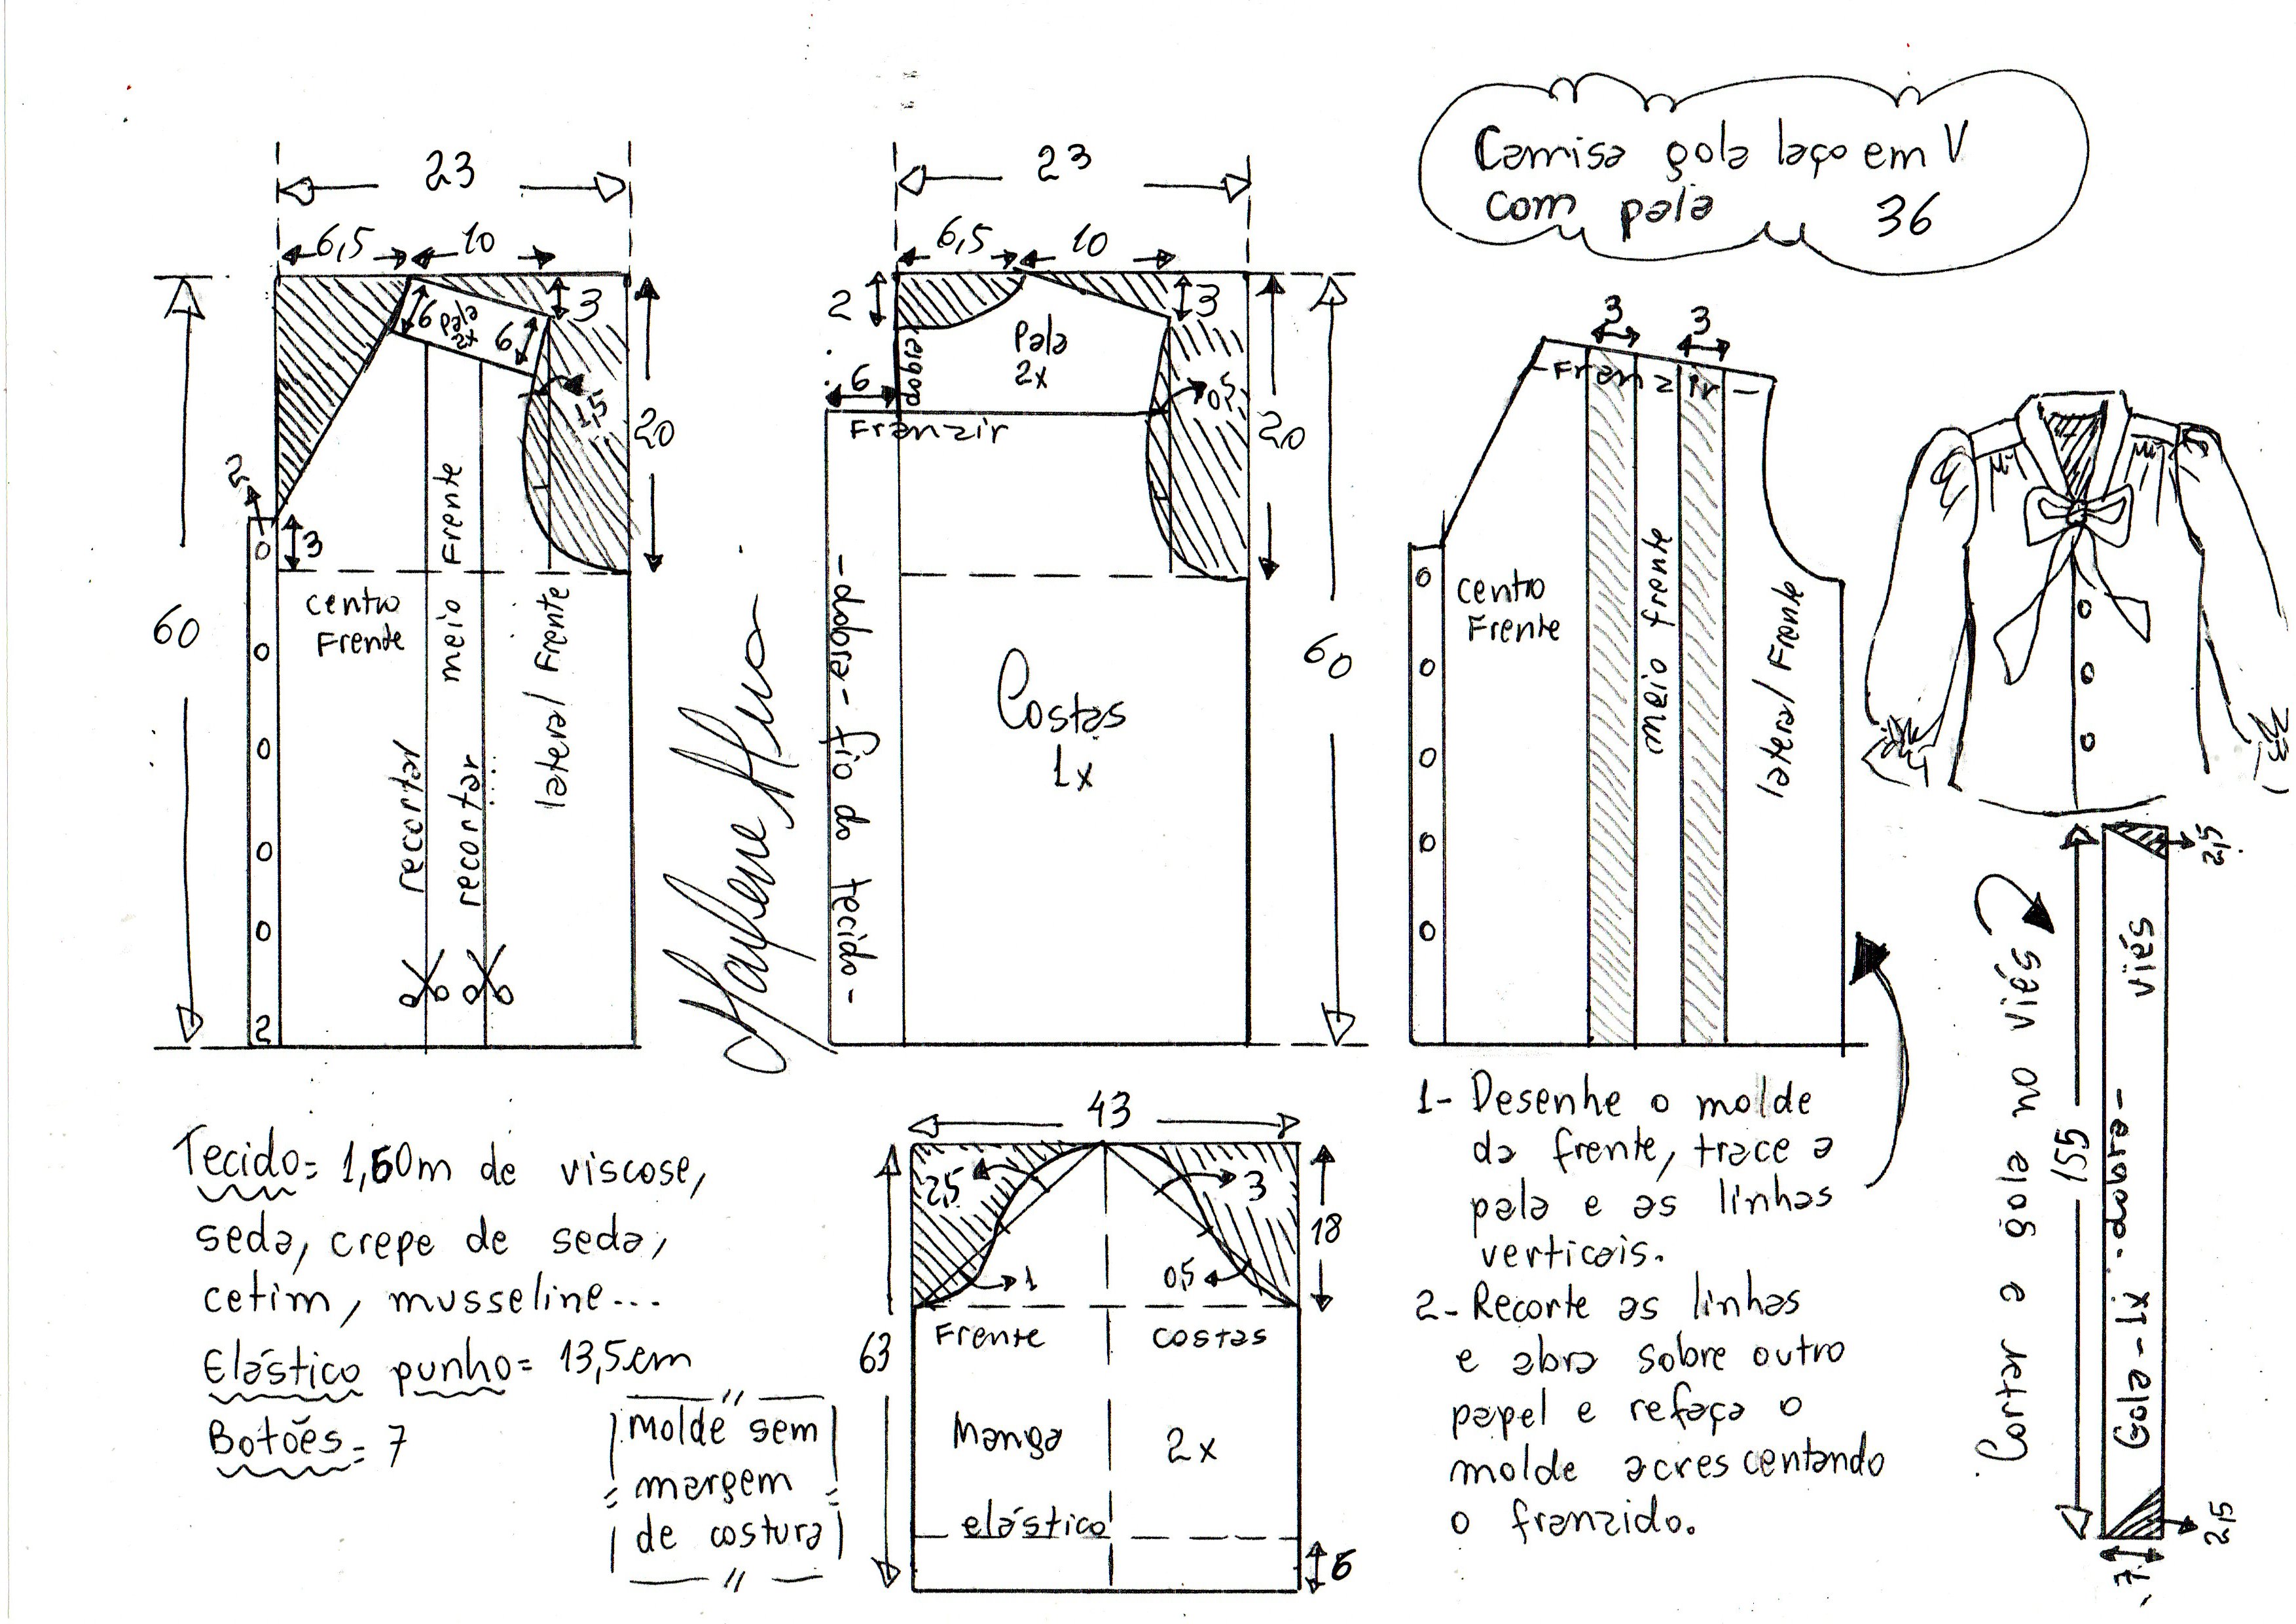 Camisa gola laço em V
com pala 36
23
6,5 10
6
Pala
2x
6
3
1,5
20
2
3
60
Centro
Frente
meio Frente
lateral Frente
recortar
recortar...
2
Marlene Mukai
23
6,5 10
2
3
dobra
Pala
2x
6
0,5
20
Franzir
-dobra- fio do tecido-
Costas
1x
60
3 3
-Franzir-
Centro
Frente
meio frente
lateral Frente
Tecido= 1,60m de viscose,
seda, crepe de seda,
cetim, musseline...
Elástico punho= 13,5cm
Botões= 7
molde sem
margem
de costura
43
2,5
3
18
1
0,5
Frente Costas
63
Manga 2x
elástico
6
1- Desenhe o molde
da frente, trace a
pala e as linhas
verticais.
2- Recorte as linhas
e abra sobre outro
papel e refaça o
molde acrescentando
o franzido.
Cortar a gola no viés
155
2,5
viés
Gola-1x -dobra-
2,5
7